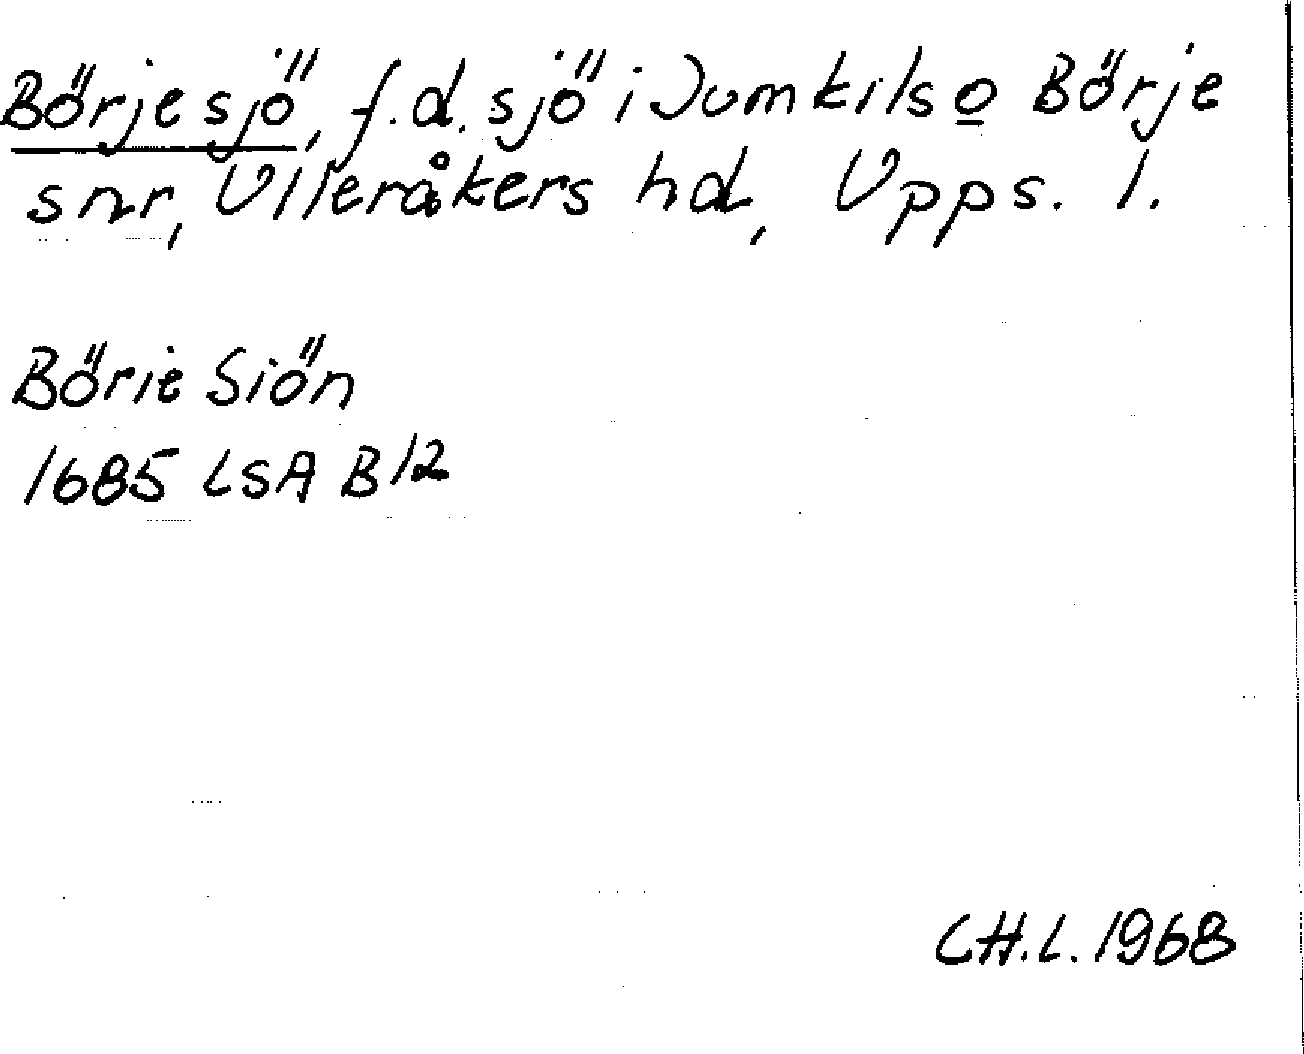 Börjesjö, f.d. sjö i Jumkils o Börje
snr, Ulleråkers hd, Upps. l.
Börie Siön
1685 LSA B12
CH.L. 1968